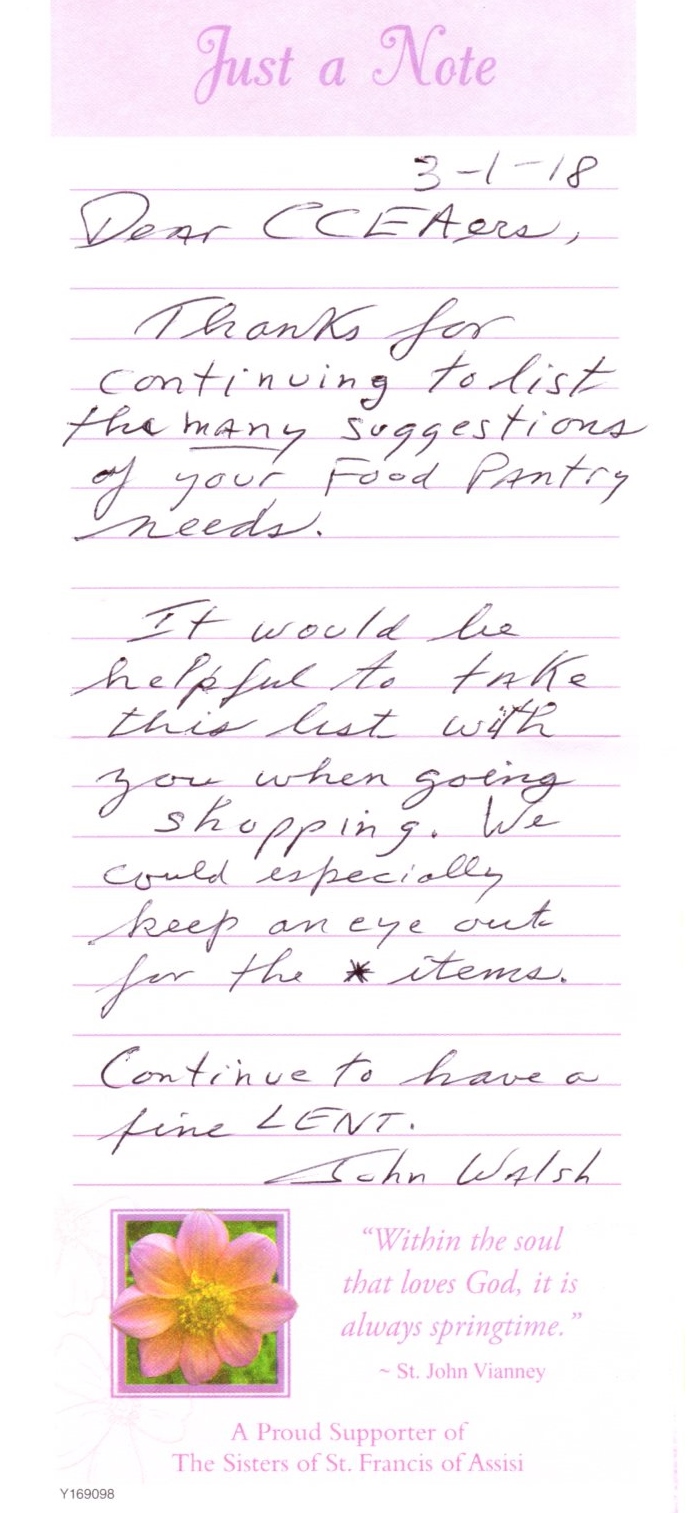 Just a Note
3-1-18
Dear CCEAers,
Thanks for
continuing to list
the many suggestions
of your Food Pantry
needs.
It would be
helpful to take
this list with
you when going
shopping. We
could especially
keep an eye out
for the * items.
Continue to have a
fine LENT.
John Walsh
"Within the soul
that loves God, it is
always springtime."
~ St. John Vianney
A Proud Supporter of
The Sisters of St. Francis of Assisi
Y169098